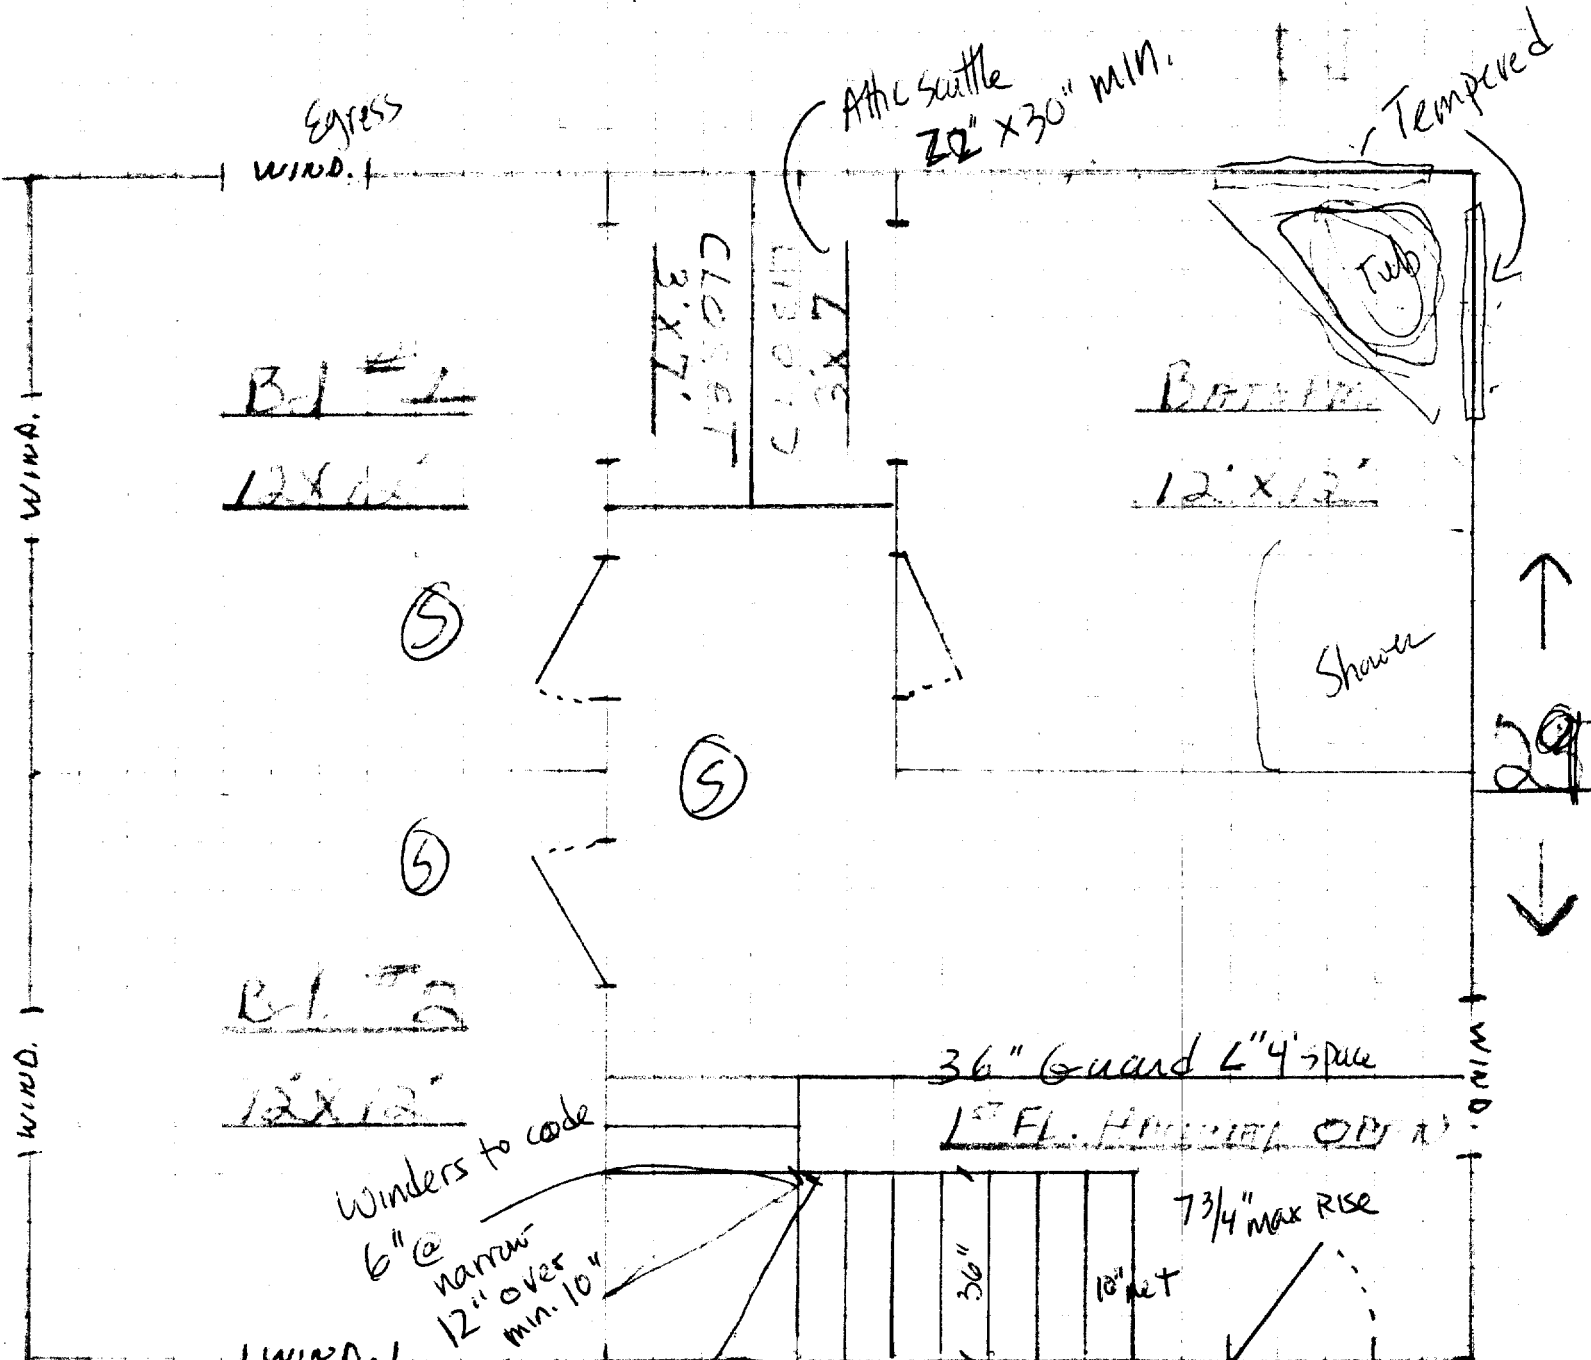 Egress
WIND.
Attic Scuttle
22" X 30" MIN.
Tempered
CLOSET
3' X 7'
CLOSET
3' X 7'
Tub
WIND.
12' X 12'
S
Shower
S
S
WIND.
12' X 12'
36" Guard L"4' space
WIND.
1ST FL.
OPEN
Winders to code
6" @
narrow
12" over
min. 10"
7 3/4" max RISE
36"
10" net
WIND.